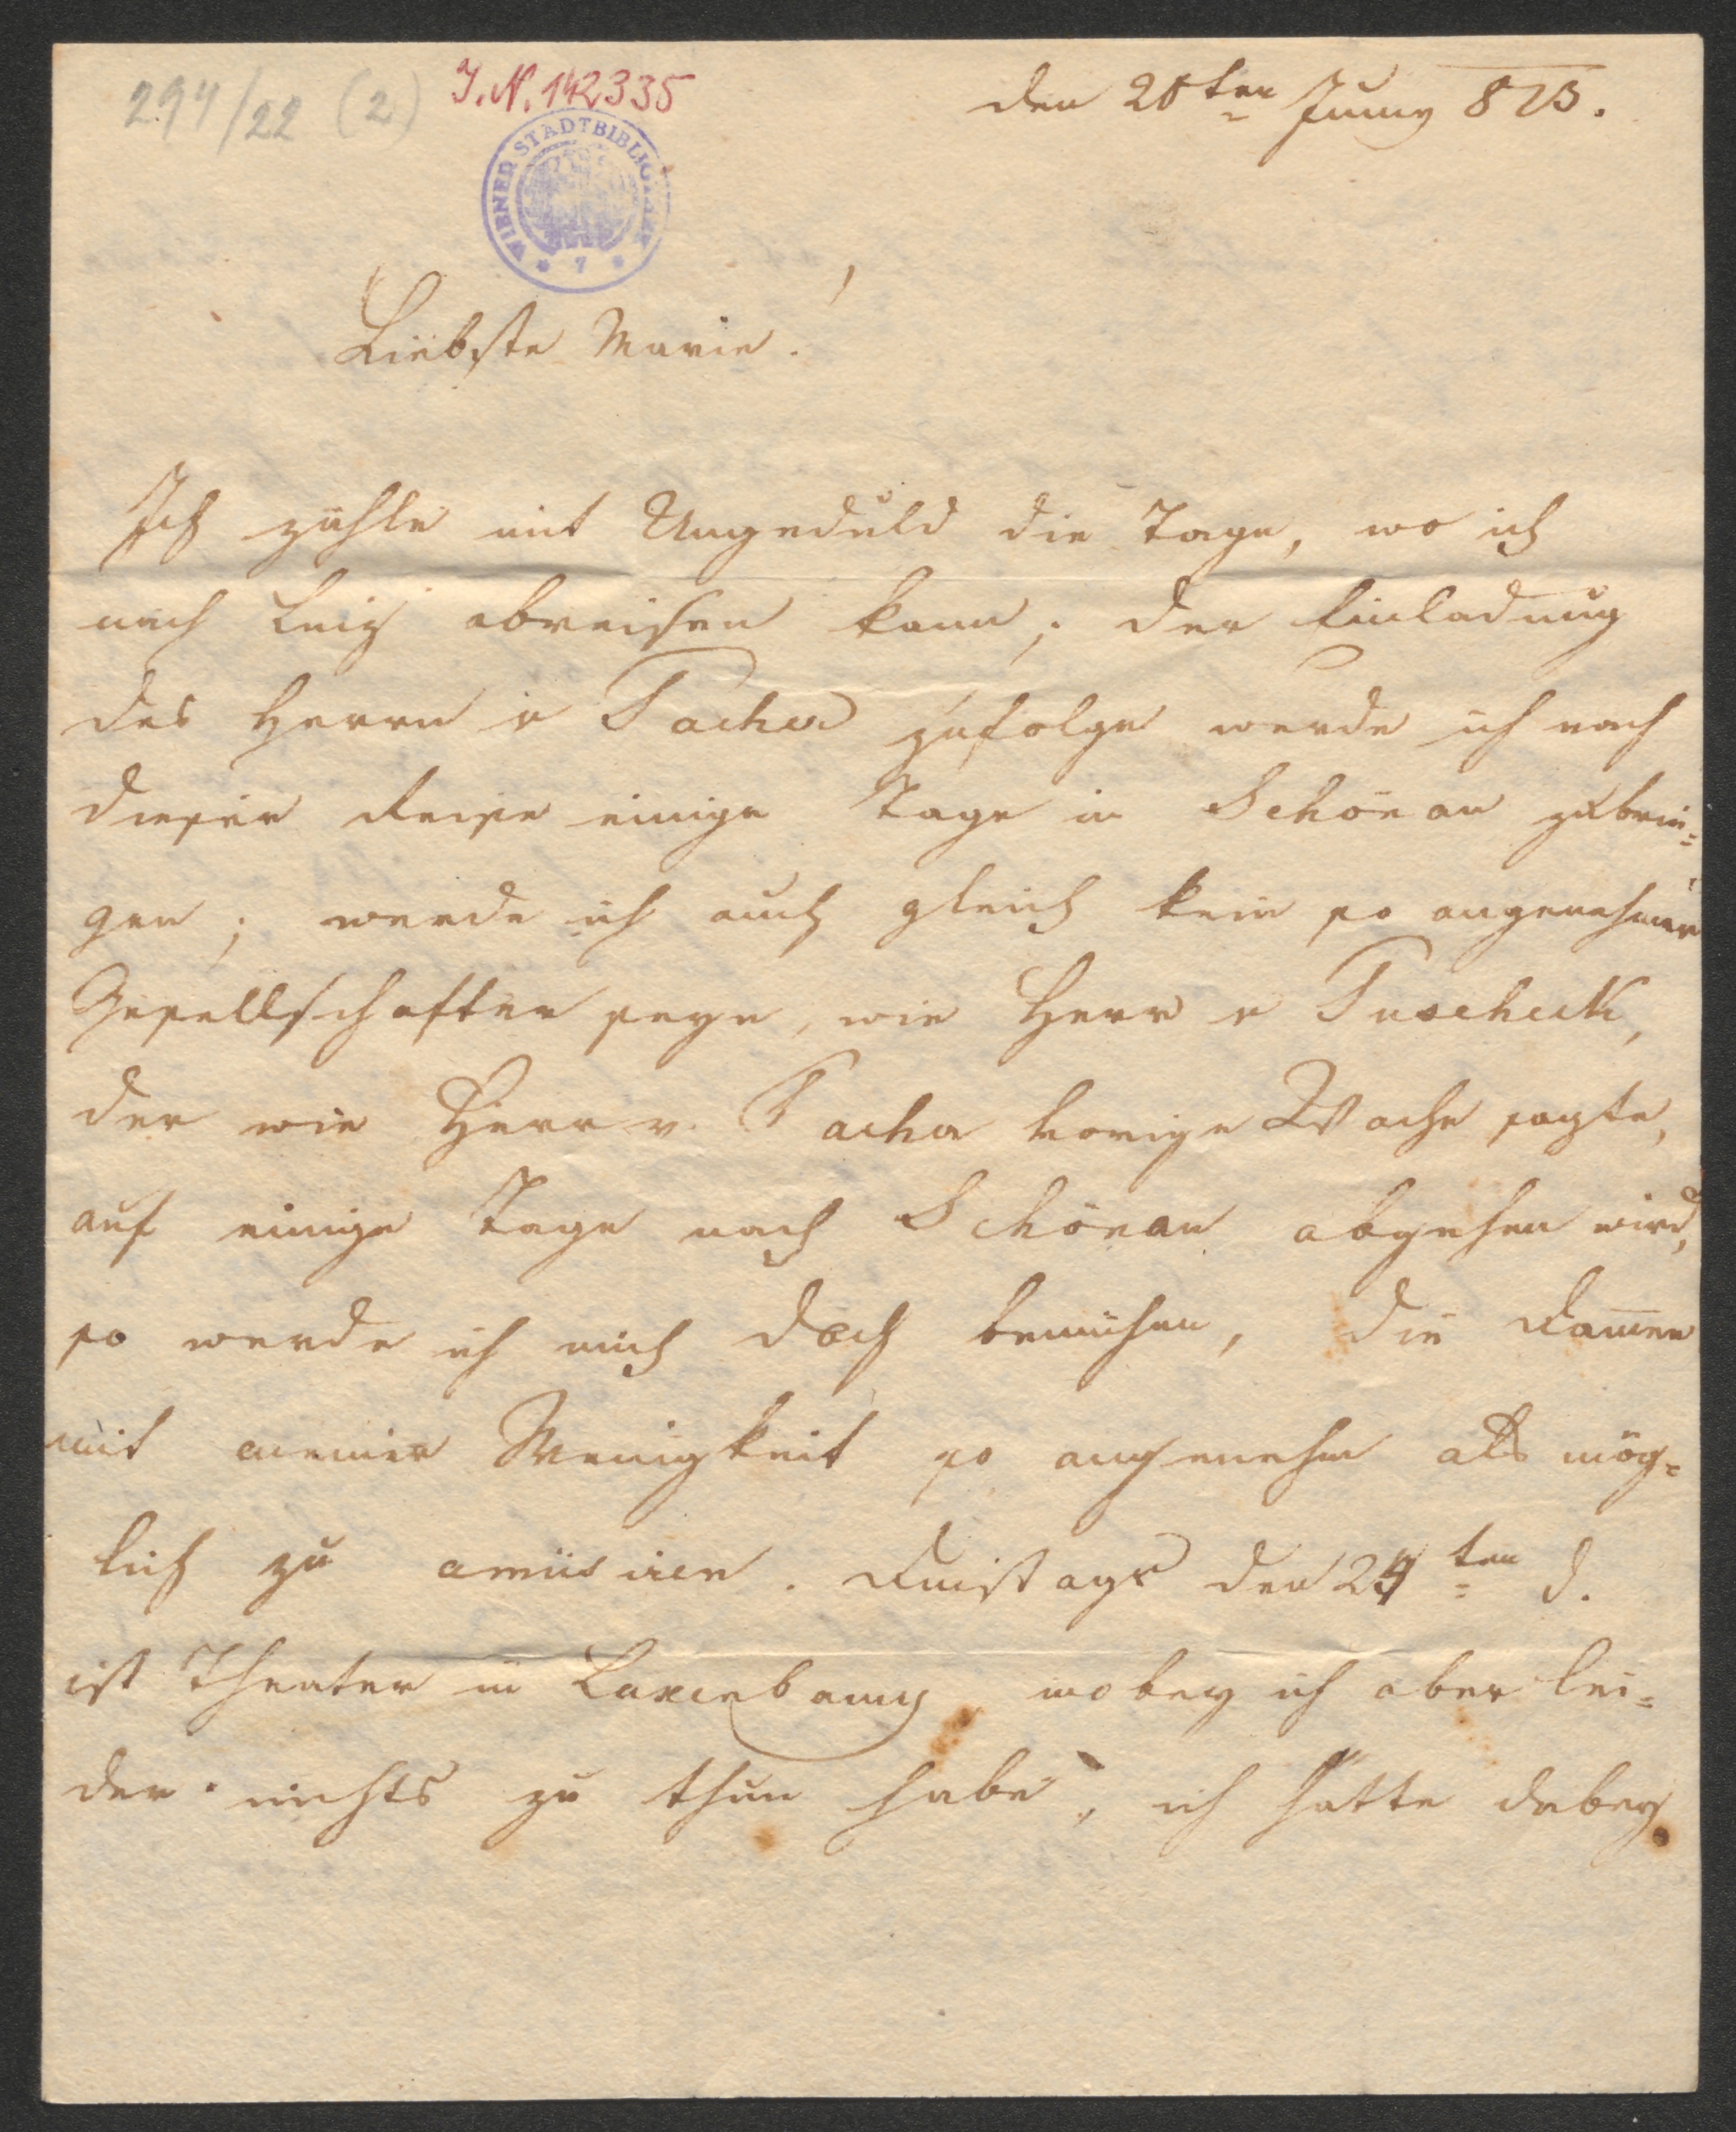 294/22 (2) I.N. 142335
den 20ten Juny 823.
WIENER STADTBIBLIOTHEK
* 7 *
Liebste Marie!
Ich zähle mit Ungeduld die Tage, wo ich
nach abreisen kann; der Einladung
des Herrn v Pacher zufolge werde ich nach
dieser Reise einige Tage in Schönau zubrin-
gen; werde ich auch gleich kein so angenehmer
Gesellschafter seyn, wie Herr v
der wie Herr v. Pacher vorige Woche sagte,
auf einige Tage nach Schönau abgehen wird,
so werde ich mich doch bemühen, die Damen
mit meiner Wenigkeit so angenehm als mög-
lich zu amüsiren. Dinstags den 24ten d.
ist Theater in Laxenburg wobey ich aber lei-
der nichts zu thun habe, ich hätte dabey